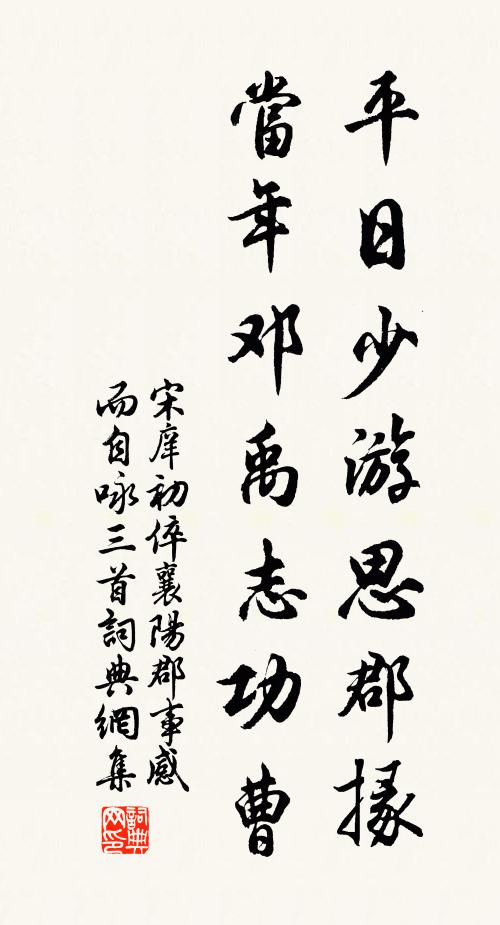 平日少游思郡掾
當年邓禹志功曹
宋庠初倅襄陽郡事感
而自咏三首詞典網集
詞典網印